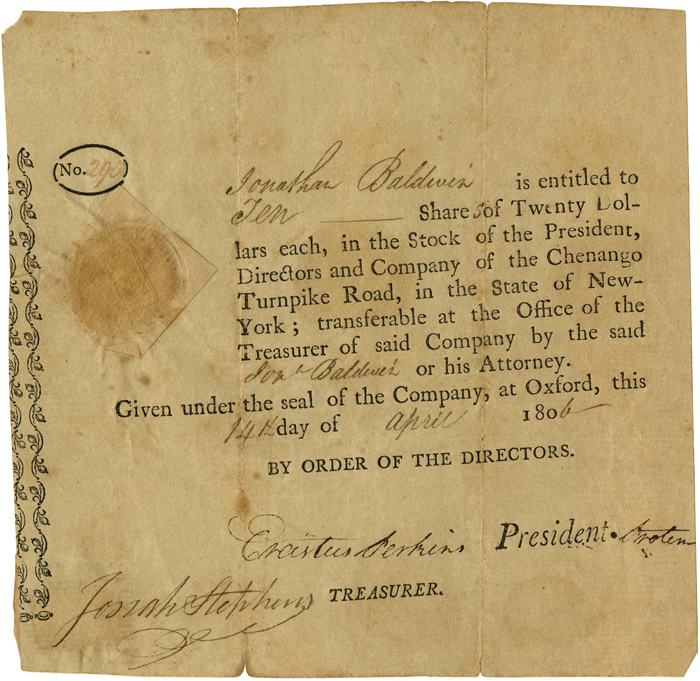 No. 295
Jonathan Baldwin is entitled to
Ten Shares of Twenty Dol-
lars each, in the Stock of the President,
Directors and Company of the Chenango
Turnpike Road, in the State of New-
York; transferable at the Office of the
Treasurer of said Company by the said
Jona Baldwin or his Attorney.
Given under the seal of the Company, at Oxford, this
14th day of April 1806
BY ORDER OF THE DIRECTORS.
Erastus Perkins President. Protem
Josiah Stephens TREASURER.